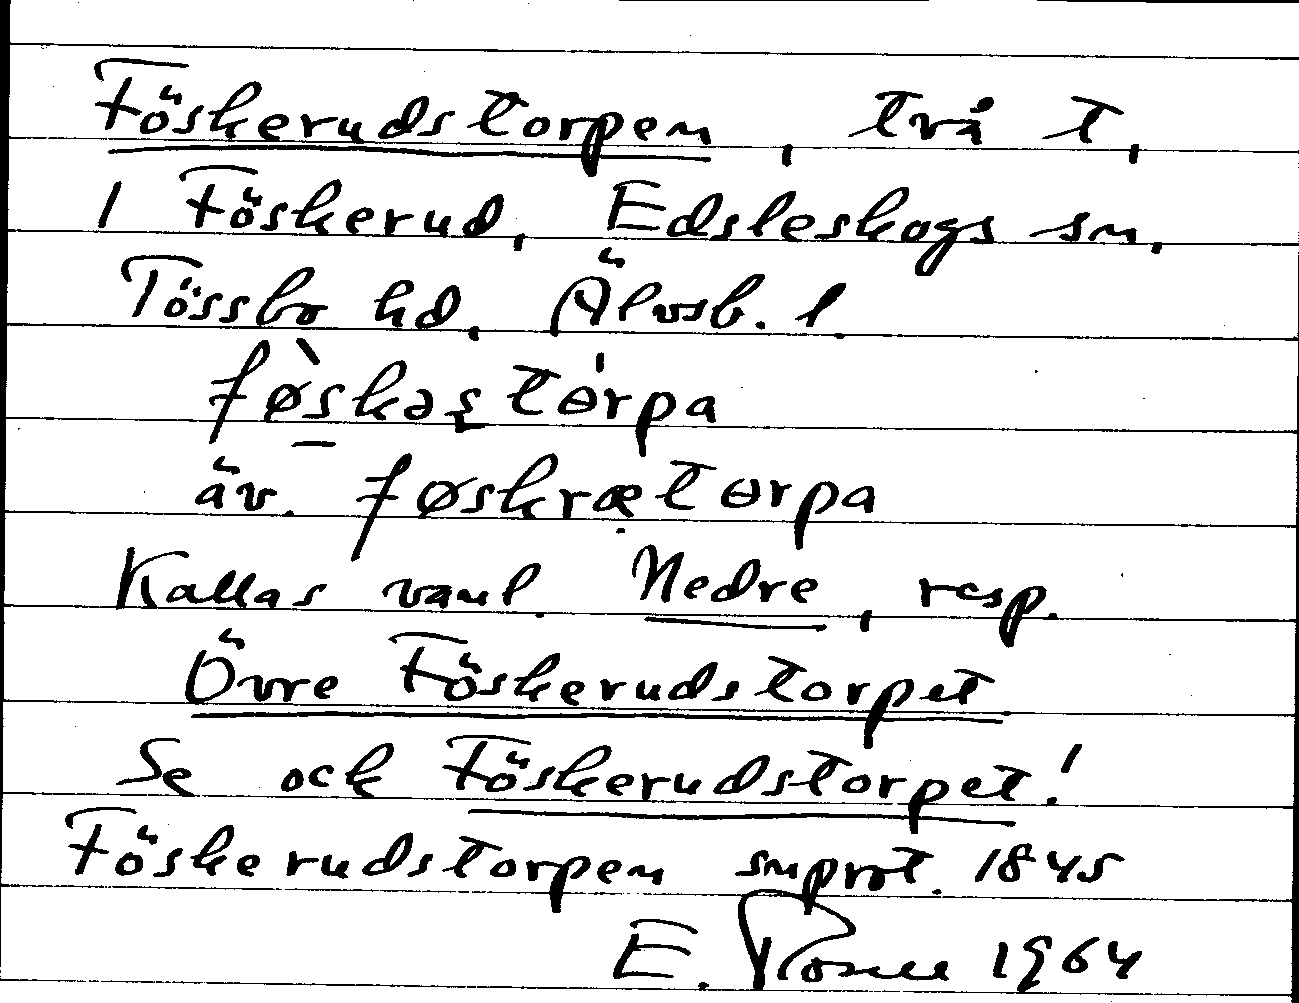 Föskerudstorpen, två t,
i Föskerud, Edsleskogs sn,
Tössbo hd, Älvsb. l.
føskəstɵrpa
äv. føskrætɵrpa
Kallas vanl. Nedre, resp.
Övre Föskerudstorpet
Se ock Föskerudstorpet!
Föskerudstorpen snprot. 1845
E. 1964